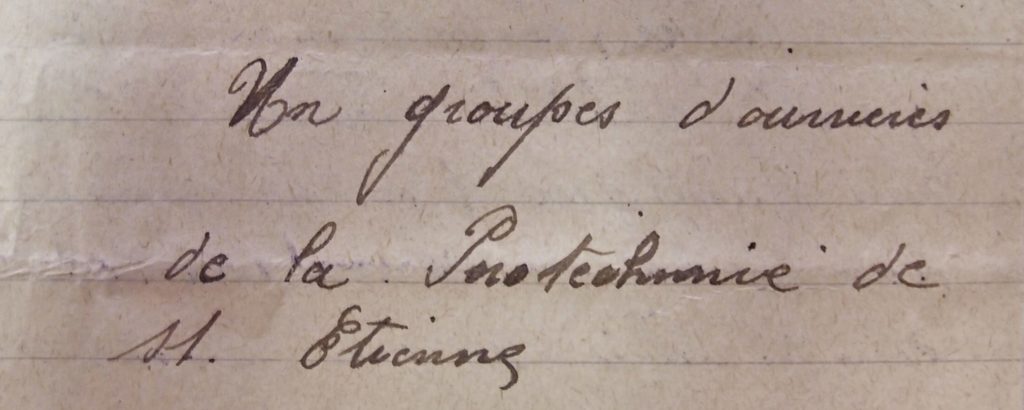 Un groupes d'ouvriers
de la Pirotechnnie de
St. Etienne